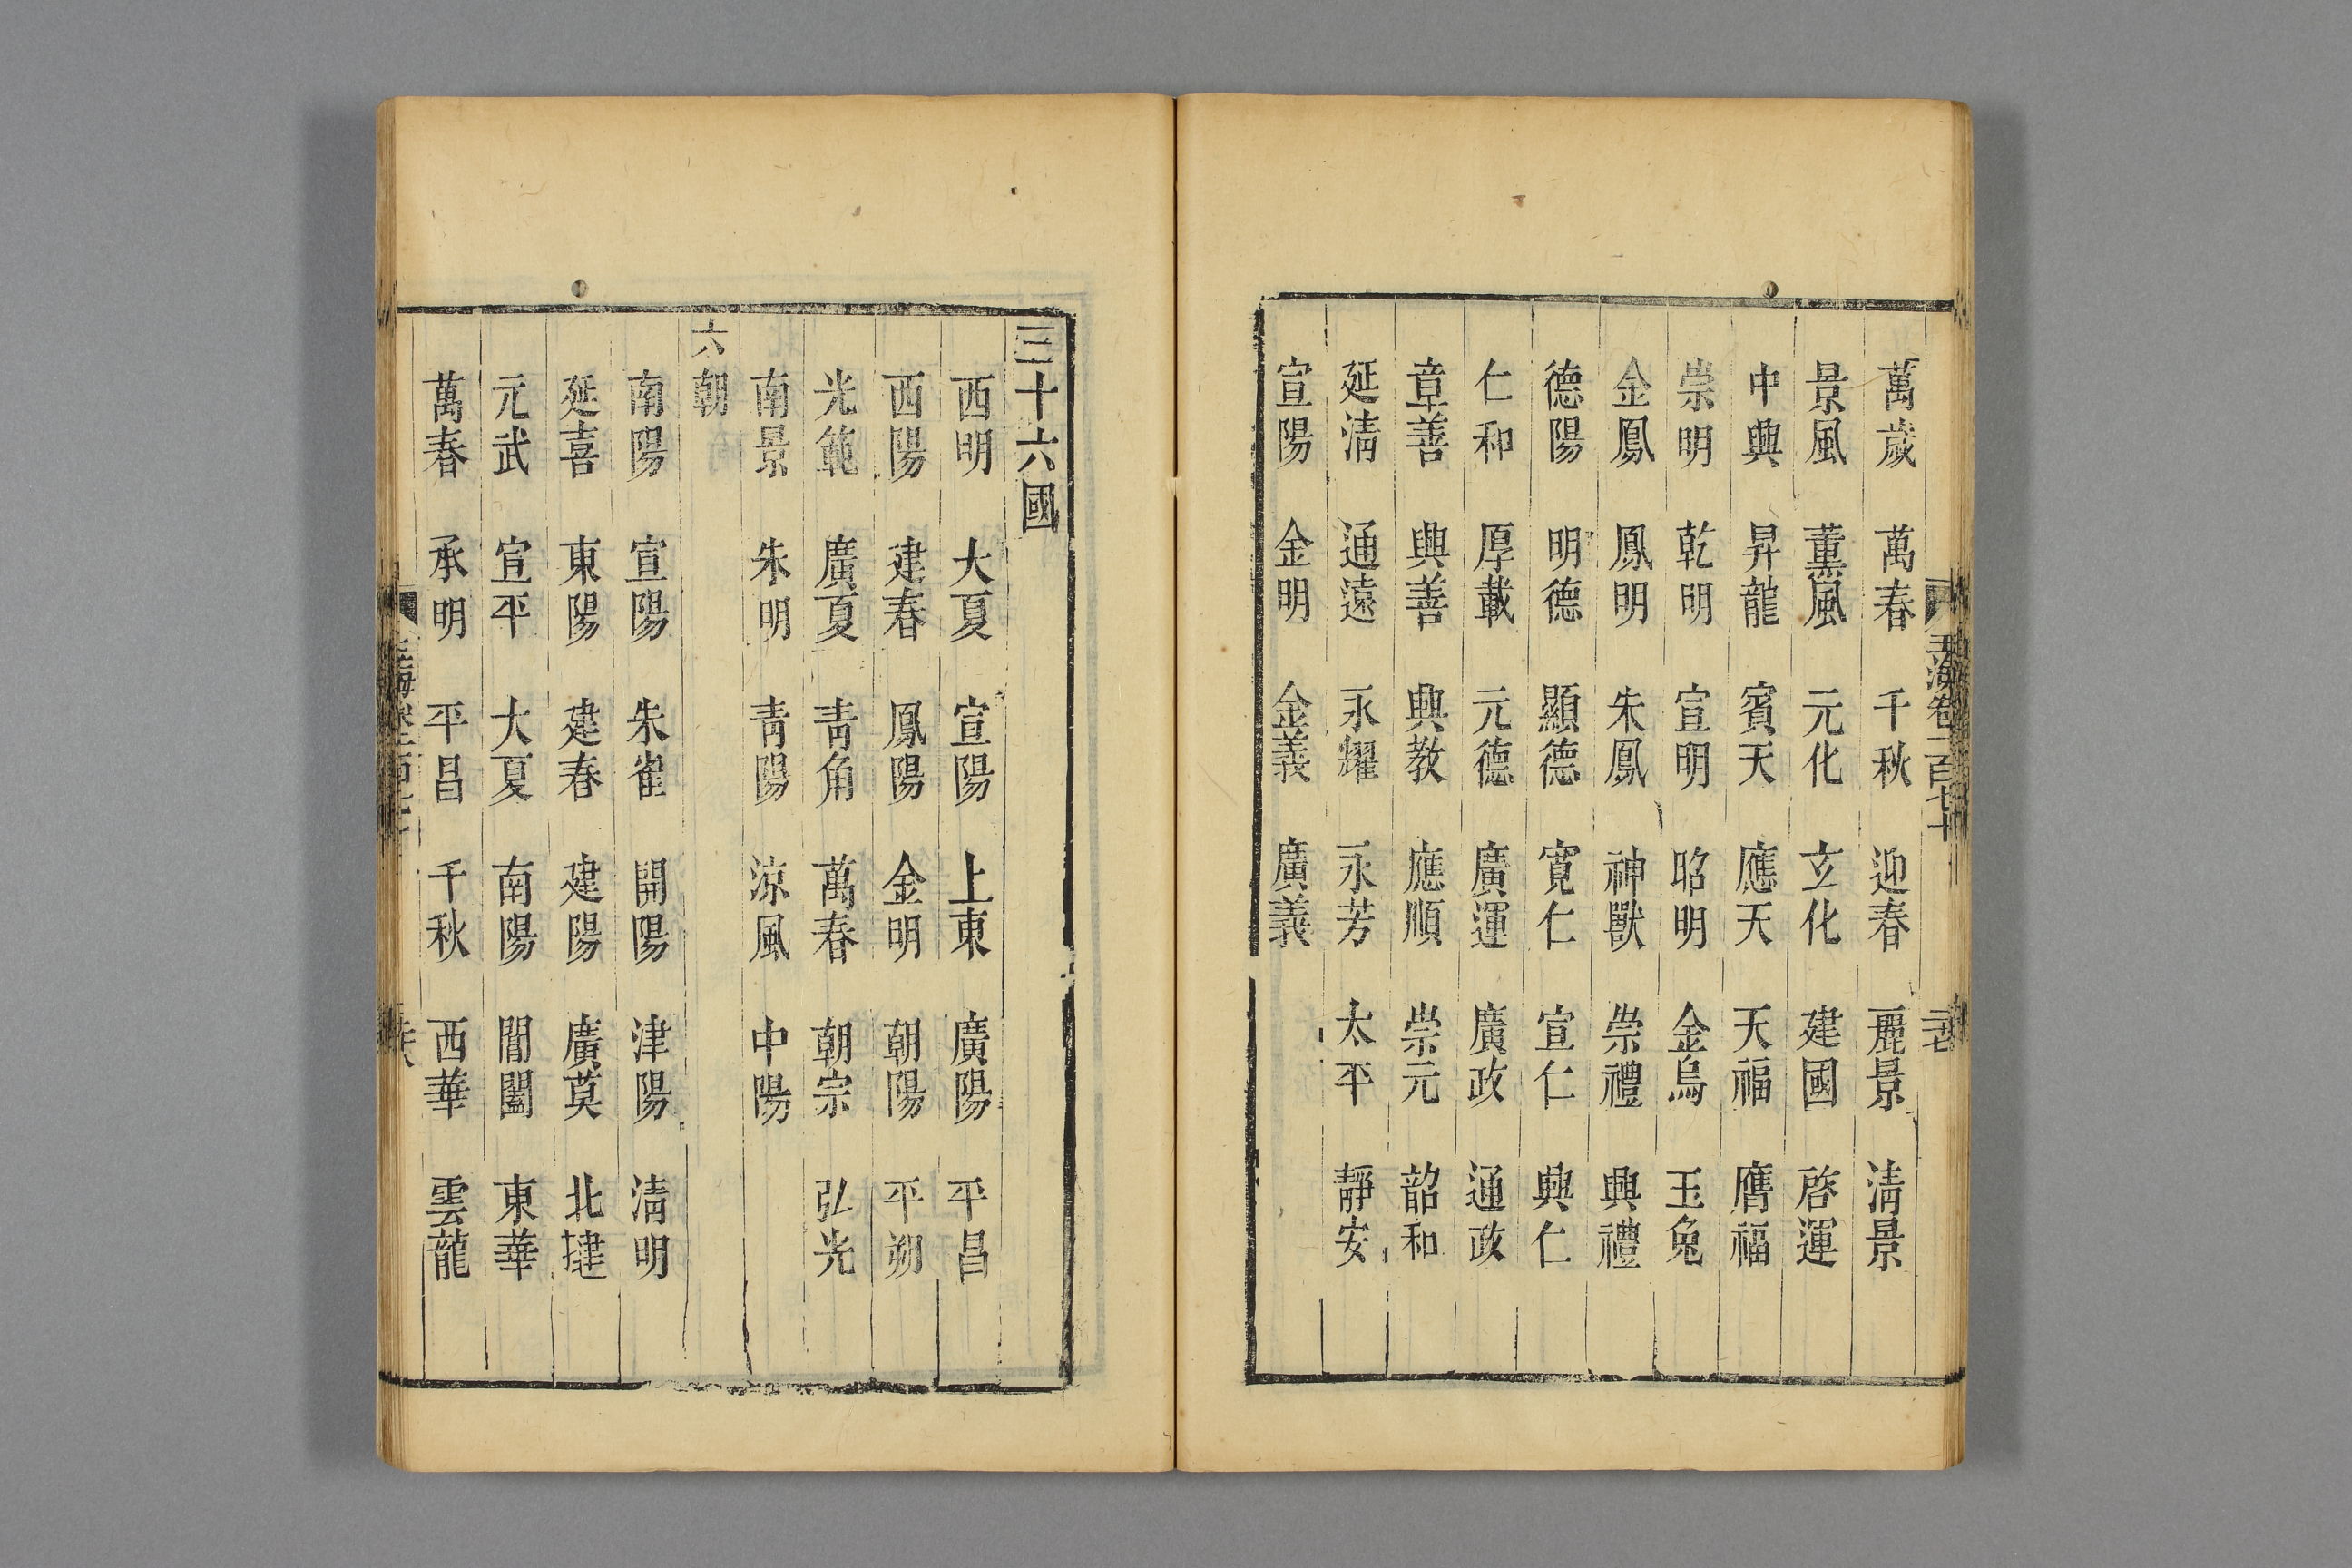 萬歲 萬春 千秋 迎春 麗景 淸景
景風 薰風 元化 玄化 建國 啓運
中興 昇龍 賓天 應天 天福 膺福
崇明 乾明 宣明 昭明 金烏 玉兔
金鳳 鳳明 朱鳳 神獸 崇禮 興禮
德陽 明德 顯德 寬仁 宣仁 興仁
仁和 厚載 元德 廣運 廣政 通政
章善 興善 興教 應順 崇元 韶和
延淸 通遠 永耀 永芳 太平 靜安
宣陽 金明 金義 廣義
三十六國
西明 大夏 宣陽 上東 廣陽 平昌
西陽 建春 鳳陽 金明 朝陽 平朔
光範 廣夏 靑角 萬春 朝宗 弘光
南景 朱明 靑陽 涼風 中陽
六朝
南陽 宣陽 朱雀 開陽 津陽 淸明
延喜 東陽 建春 建陽 廣莫 北揵
元武 宣平 大夏 南陽 閶闔 東華
萬春 承明 平昌 千秋 西華 雲龍